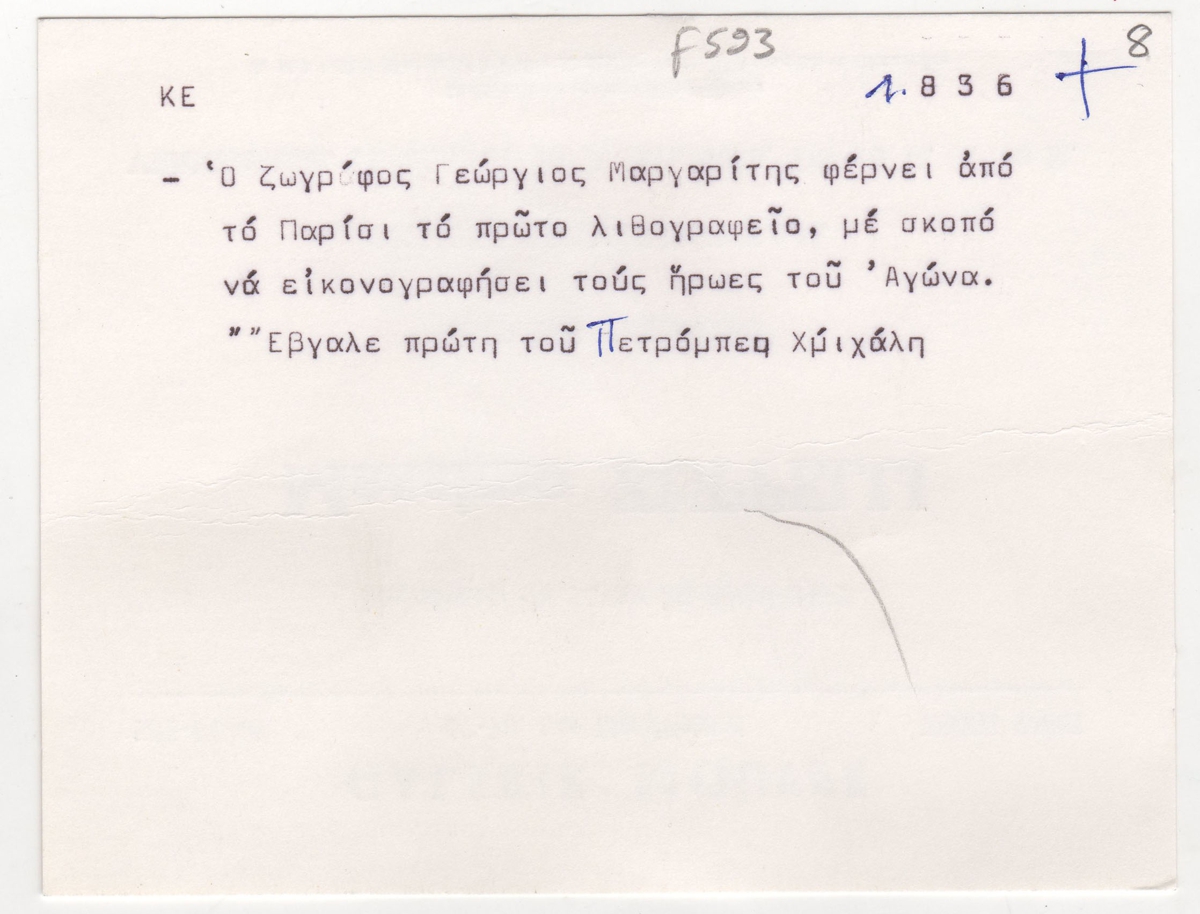 F593
8
ΚΕ
1.836 +
- Ὁ ζωγράφος Γεώργιος Μαργαρίτης φέρνει ἀπό
τό Παρίσι τό πρῶτο λιθογραφεῖο, μέ σκοπό
νά εἰκονογραφήσει τούς ἥρωες τοῦ Ἀγώνα.
""Εβγαλε πρώτη τοῦ Πετρόμπεη Χμιχάλη